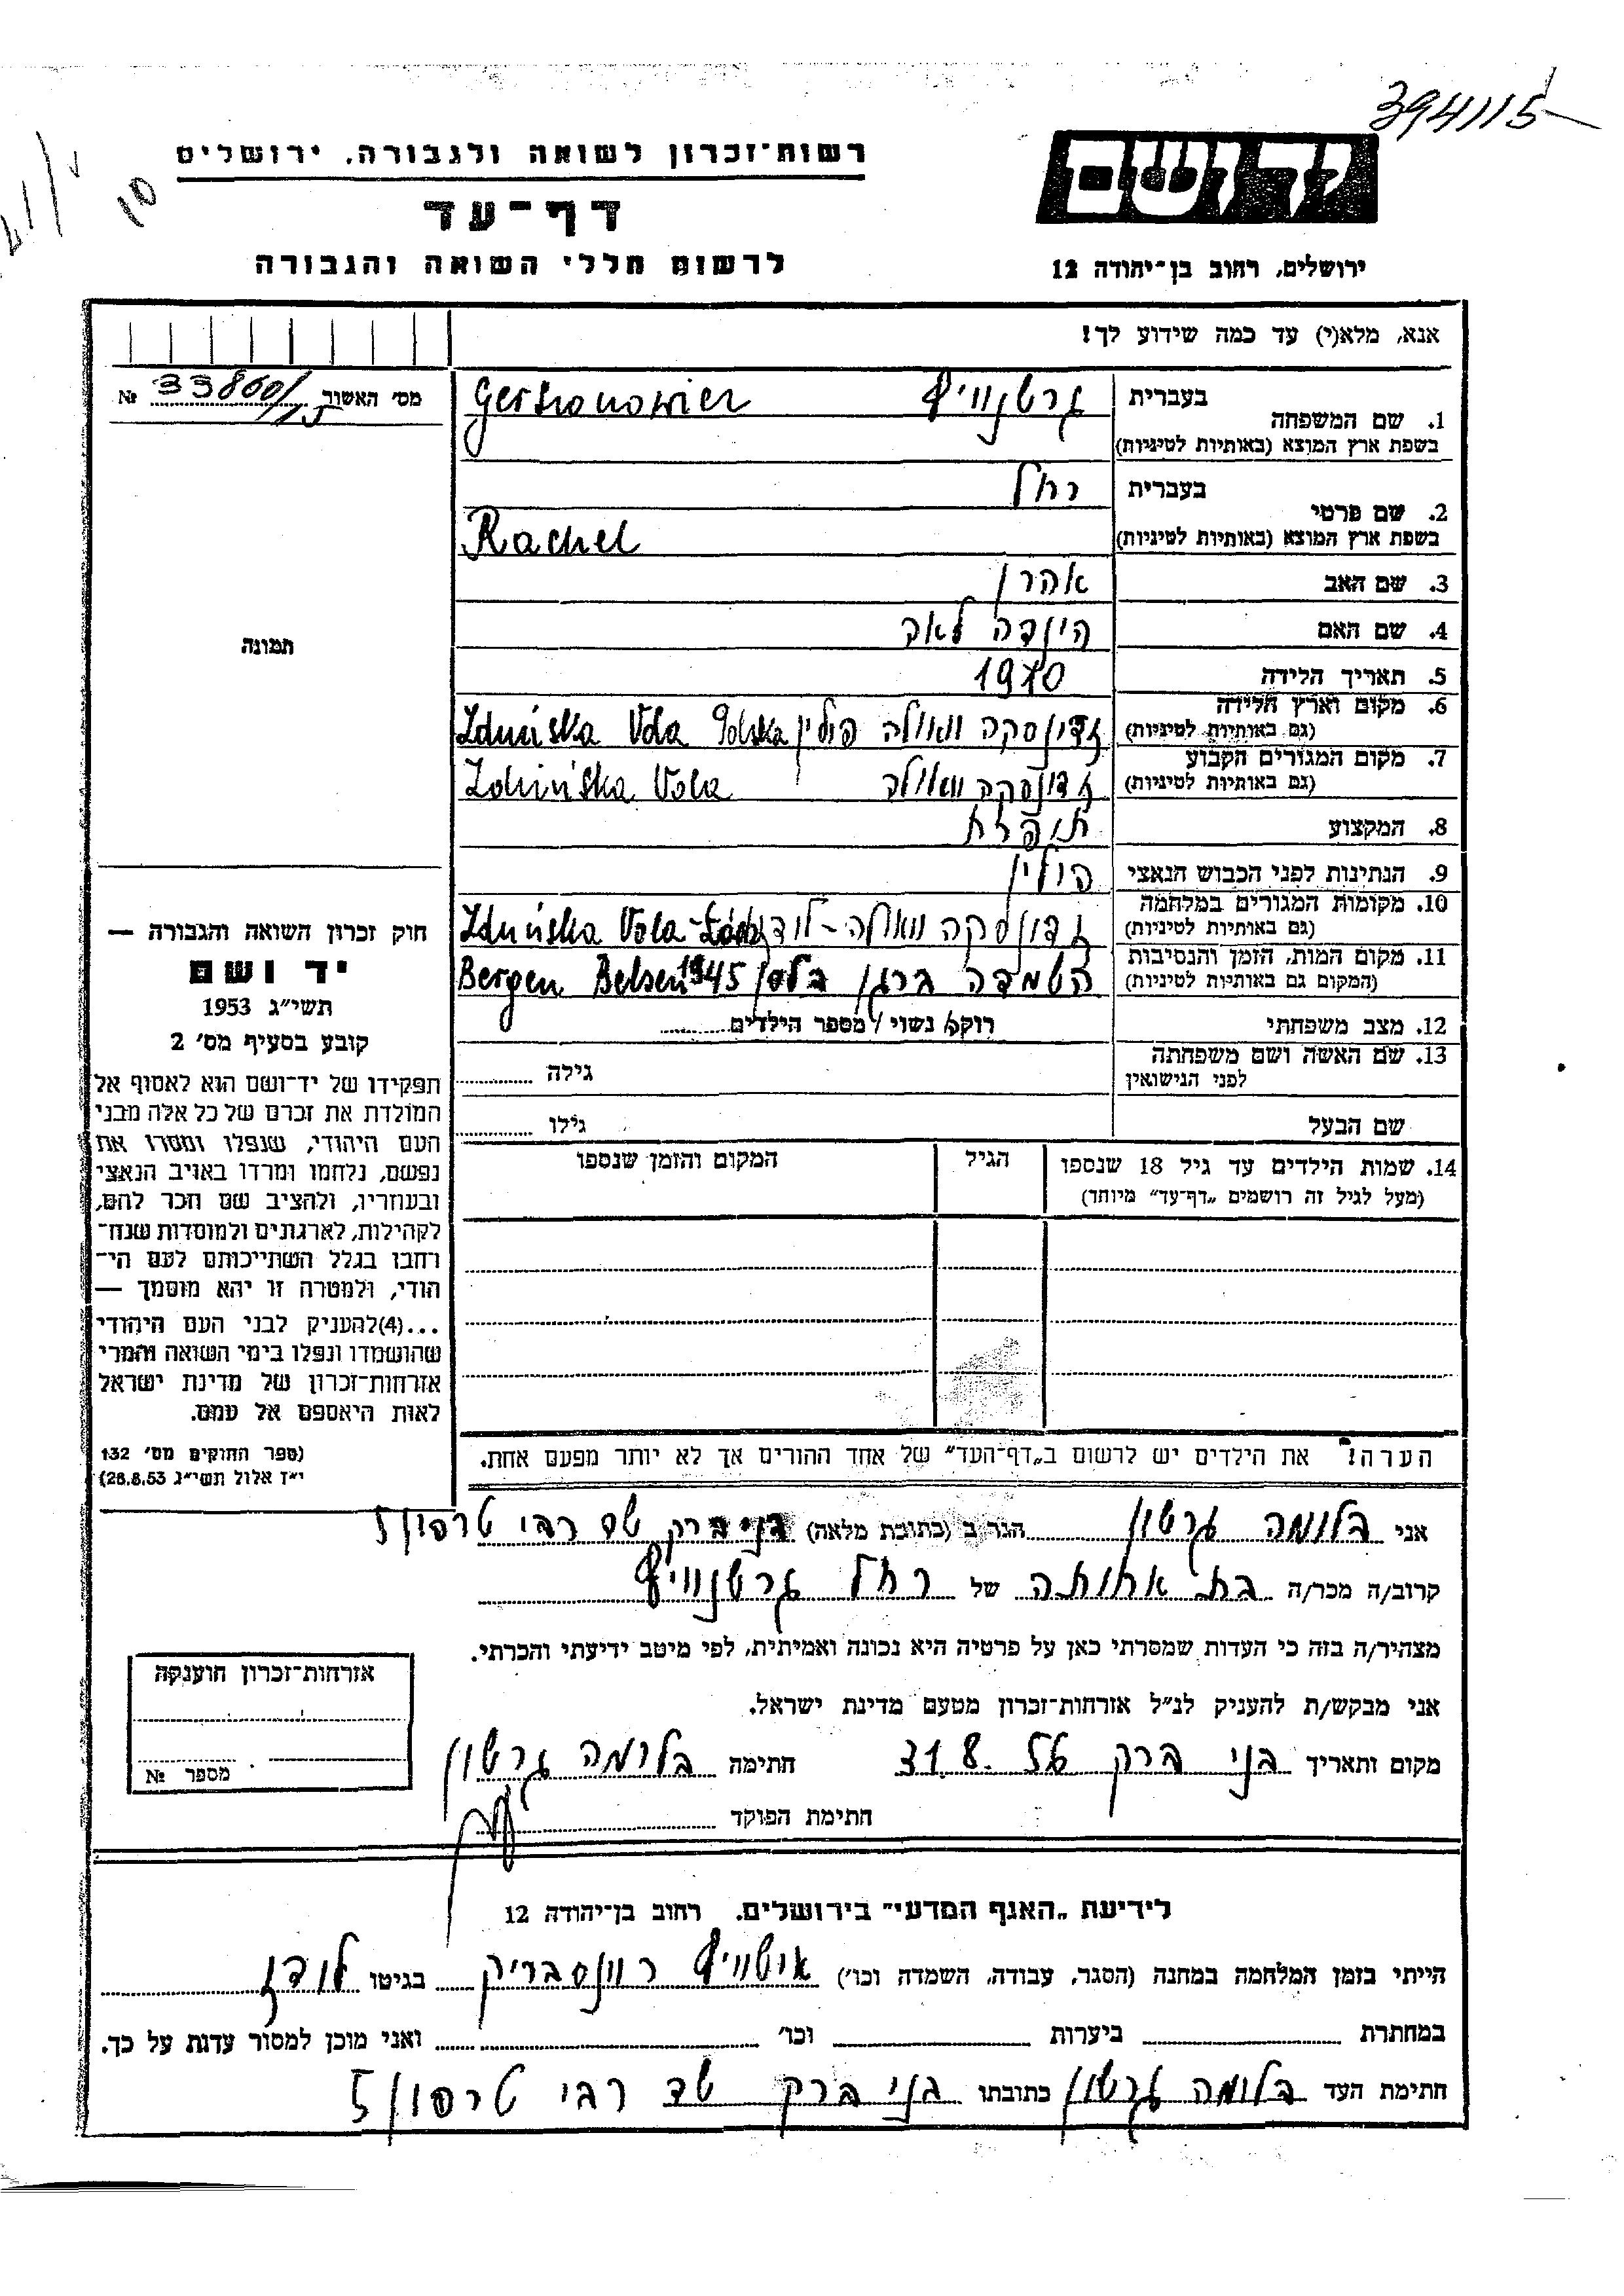 394115
רשות־זכרון לשואה ולגבורה, ירושלים
יד ושם
10
דף־עד
לרשום חללי השואה והגבורה
ירושלים, רחוב בן־יהודה 12
אנא, מלא(י) עד כמה שידוע לך!
מס׳ האשור 33860/15 №
1. שם המשפחה
בעברית גרשנוויץ
בשפת ארץ המוצא (באותיות לטיניות)
Gershonowicz
2. שם פרטי
בעברית רחל
בשפת ארץ המוצא (באותיות לטיניות)
Rachel
3. שם האב אהרן
4. שם האם הינדה לאה
תמונה
5. תאריך הלידה 1910
6. מקום וארץ הלידה
(גם באותיות לטיניות)
זדונסקה וואולה פולין Zduńska Vola Polska
7. מקום המגורים הקבוע
(גם באותיות לטיניות)
זדונסקה וואולה Zduńska Vola
8. המקצוע תופרת
9. הנתינות לפני הכבוש הנאצי פולין
10. מקומות המגורים במלחמה
(גם באותיות לטיניות)
זדונסקה וואולה - לודז Zduńska Vola - Łódź
11. מקום המות, הזמן והנסיבות
(המקום גם באותיות לטיניות)
השמדה ברגן בלסן 1945 Bergen Belsen
12. מצב משפחתי רוקא נשוי / מספר הילדים
13. שם האשה ושם משפחתה
לפני הנישואין
גילה
שם הבעל גילו
14. שמות הילדים עד גיל 18 שנספו
(מעל לגיל זה רושמים „דף־עד״ מיוחד)
הגיל
המקום והזמן שנספו
חוק זכרון השואה והגבורה —
יד ושם
תשי״ג 1953
קובע בסעיף מס׳ 2
תפקידו של יד־ושם הוא לאסוף אל
המולדת את זכרם של כל אלה מבני
העם היהודי, שנפלו ומסרו את
נפשם, נלחמו ומרדו באויב הנאצי
ובעוזריו, ולהציב שם וזכר להם,
לקהילות, לארגונים ולמוסדות שנח־
רבו בגלל השתייכותם לעם הי־
הודי, ולמטרה זו יהא מוסמך —
...(4) להעניק לבני העם היהודי
שהושמדו ונפלו בימי השואה והמרי
אזרחות־זכרון של מדינת ישראל
לאות היאספם אל עמם.
(ספר החוקים מס׳ 132
י״ז אלול תשי״ג 28.8.53)
הערה! את הילדים יש לרשום ב„דף־העד״ של אחד ההורים אך לא יותר מפעם אחת.
אני בלומה גרשון הגר ב (כתובת מלאה) בני ברק שד רבי טרפון 5
קרוב/ה מכר/ה בת אחותה של רחל גרשנוויץ
מצהיר/ה בזה כי העדות שמסרתי כאן על פרטיה היא נכונה ואמיתית, לפי מיטב ידיעתי והכרתי.
אני מבקש/ת להעניק לנ״ל אזרחות־זכרון מטעם מדינת ישראל.
מקום ותאריך בני ברק 31.8.56 חתימה בלומה גרשון
חתימת הפוקד
אזרחות־זכרון הוענקה
מספר №
לידיעת „האגף המדעי״ בירושלים. רחוב בן־יהודה 12
הייתי בזמן המלחמה במחנה (הסגר, עבודה, השמדה וכו׳) אושוויץ רוונסבריק בגיטו לודז
במחתרת ביערות וכו׳ ואני מוכן למסור עדות על כך.
חתימת העד בלומה גרשון כתובתו בני ברק שד רבי טרפון 5